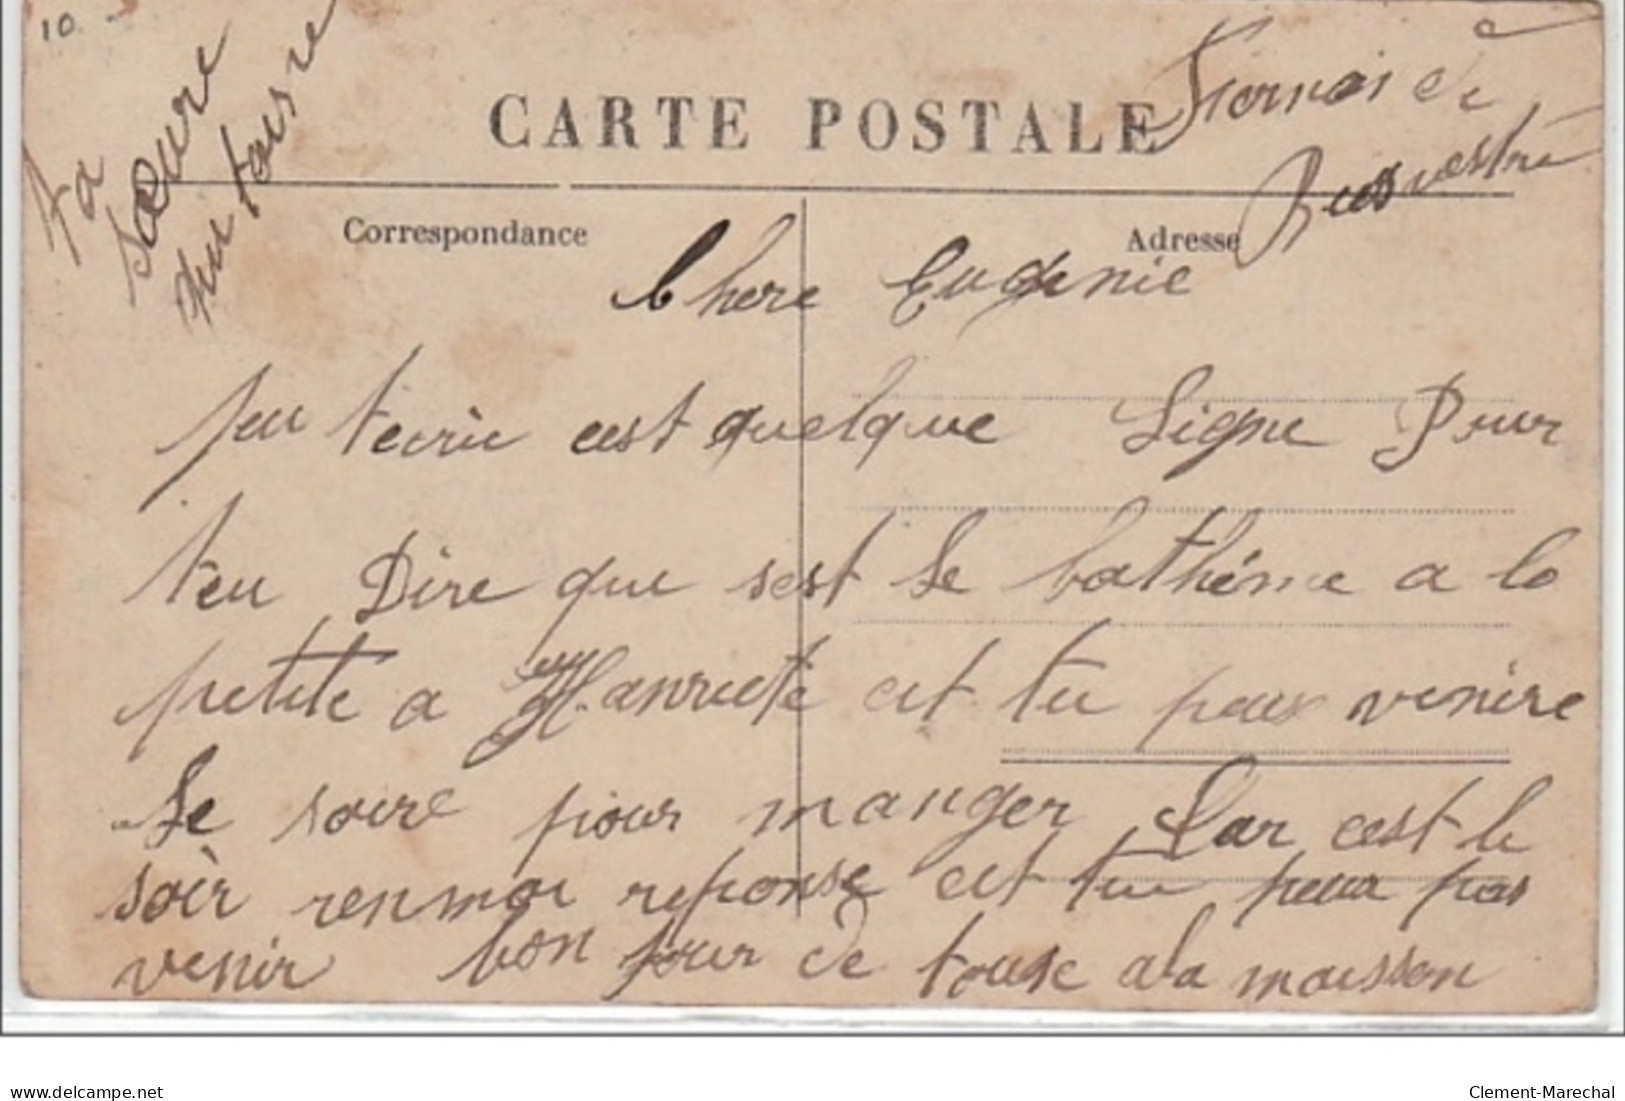 10
Ta
sœure
CARTE POSTALE
Correspondance
Adresse
Chere Eugenie
jeu tecrie cest quelque Ligne Pour
teu Dire que sest Le bathéme a la
petite a Hanriete cit tu peux venire
Le soire pour manger Car cest le
soir renmoi reponse cit tu peux pas
venir bon jour de touse ala maisson
delcampe.net
Clement-Marechal